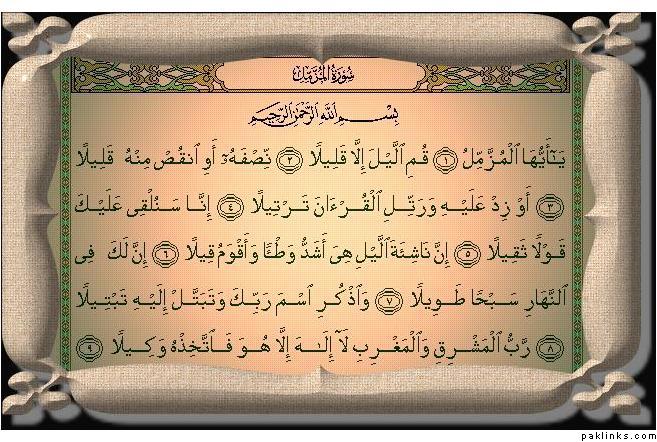 سُورَةُ المُزَّمِّل
بِسْمِ ٱللَّهِ ٱلرَّحْمَٰنِ ٱلرَّحِيمِ
يَٰٓأَيُّهَا ٱلْمُزَّمِّلُ ١ قُمِ ٱلَّيْلَ إِلَّا قَلِيلًا ٢ نِّصْفَهُۥٓ أَوِ ٱنقُصْ مِنْهُ قَلِيلًا
٣ أَوْ زِدْ عَلَيْهِ وَرَتِّلِ ٱلْقُرْءَانَ تَرْتِيلًا ٤ إِنَّا سَنُلْقِى عَلَيْكَ
قَوْلًا ثَقِيلًا ٥ إِنَّ نَاشِئَةَ ٱلَّيْلِ هِىَ أَشَدُّ وَطْـًٔا وَأَقْوَمُ قِيلًا ٦ إِنَّ لَكَ فِى
ٱلنَّهَارِ سَبْحًا طَوِيلًا ٧ وَٱذْكُرِ ٱسْمَ رَبِّكَ وَتَبَتَّلْ إِلَيْهِ تَبْتِيلًا
٨ رَّبُّ ٱلْمَشْرِقِ وَٱلْمَغْرِبِ لَآ إِلَٰهَ إِلَّا هُوَ فَٱتَّخِذْهُ وَكِيلًا ٩
paklinks.com